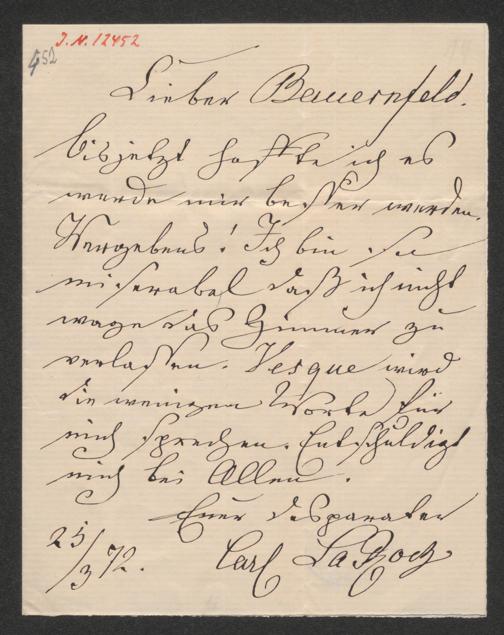 J. N. 12452
452
Lieber Bauernfeld.
bis jetzt hoffte ich es
werde mir besser werden.
Vergebens! Ich bin so
miserabel daß ich nicht
wage das Zimmer zu
verlassen. Vesque wird
die wenigen Worte für
mich sprechen. Entschuldigt
mich bei Allen.
Euer desparater
25/3 72. Carl LaRoche